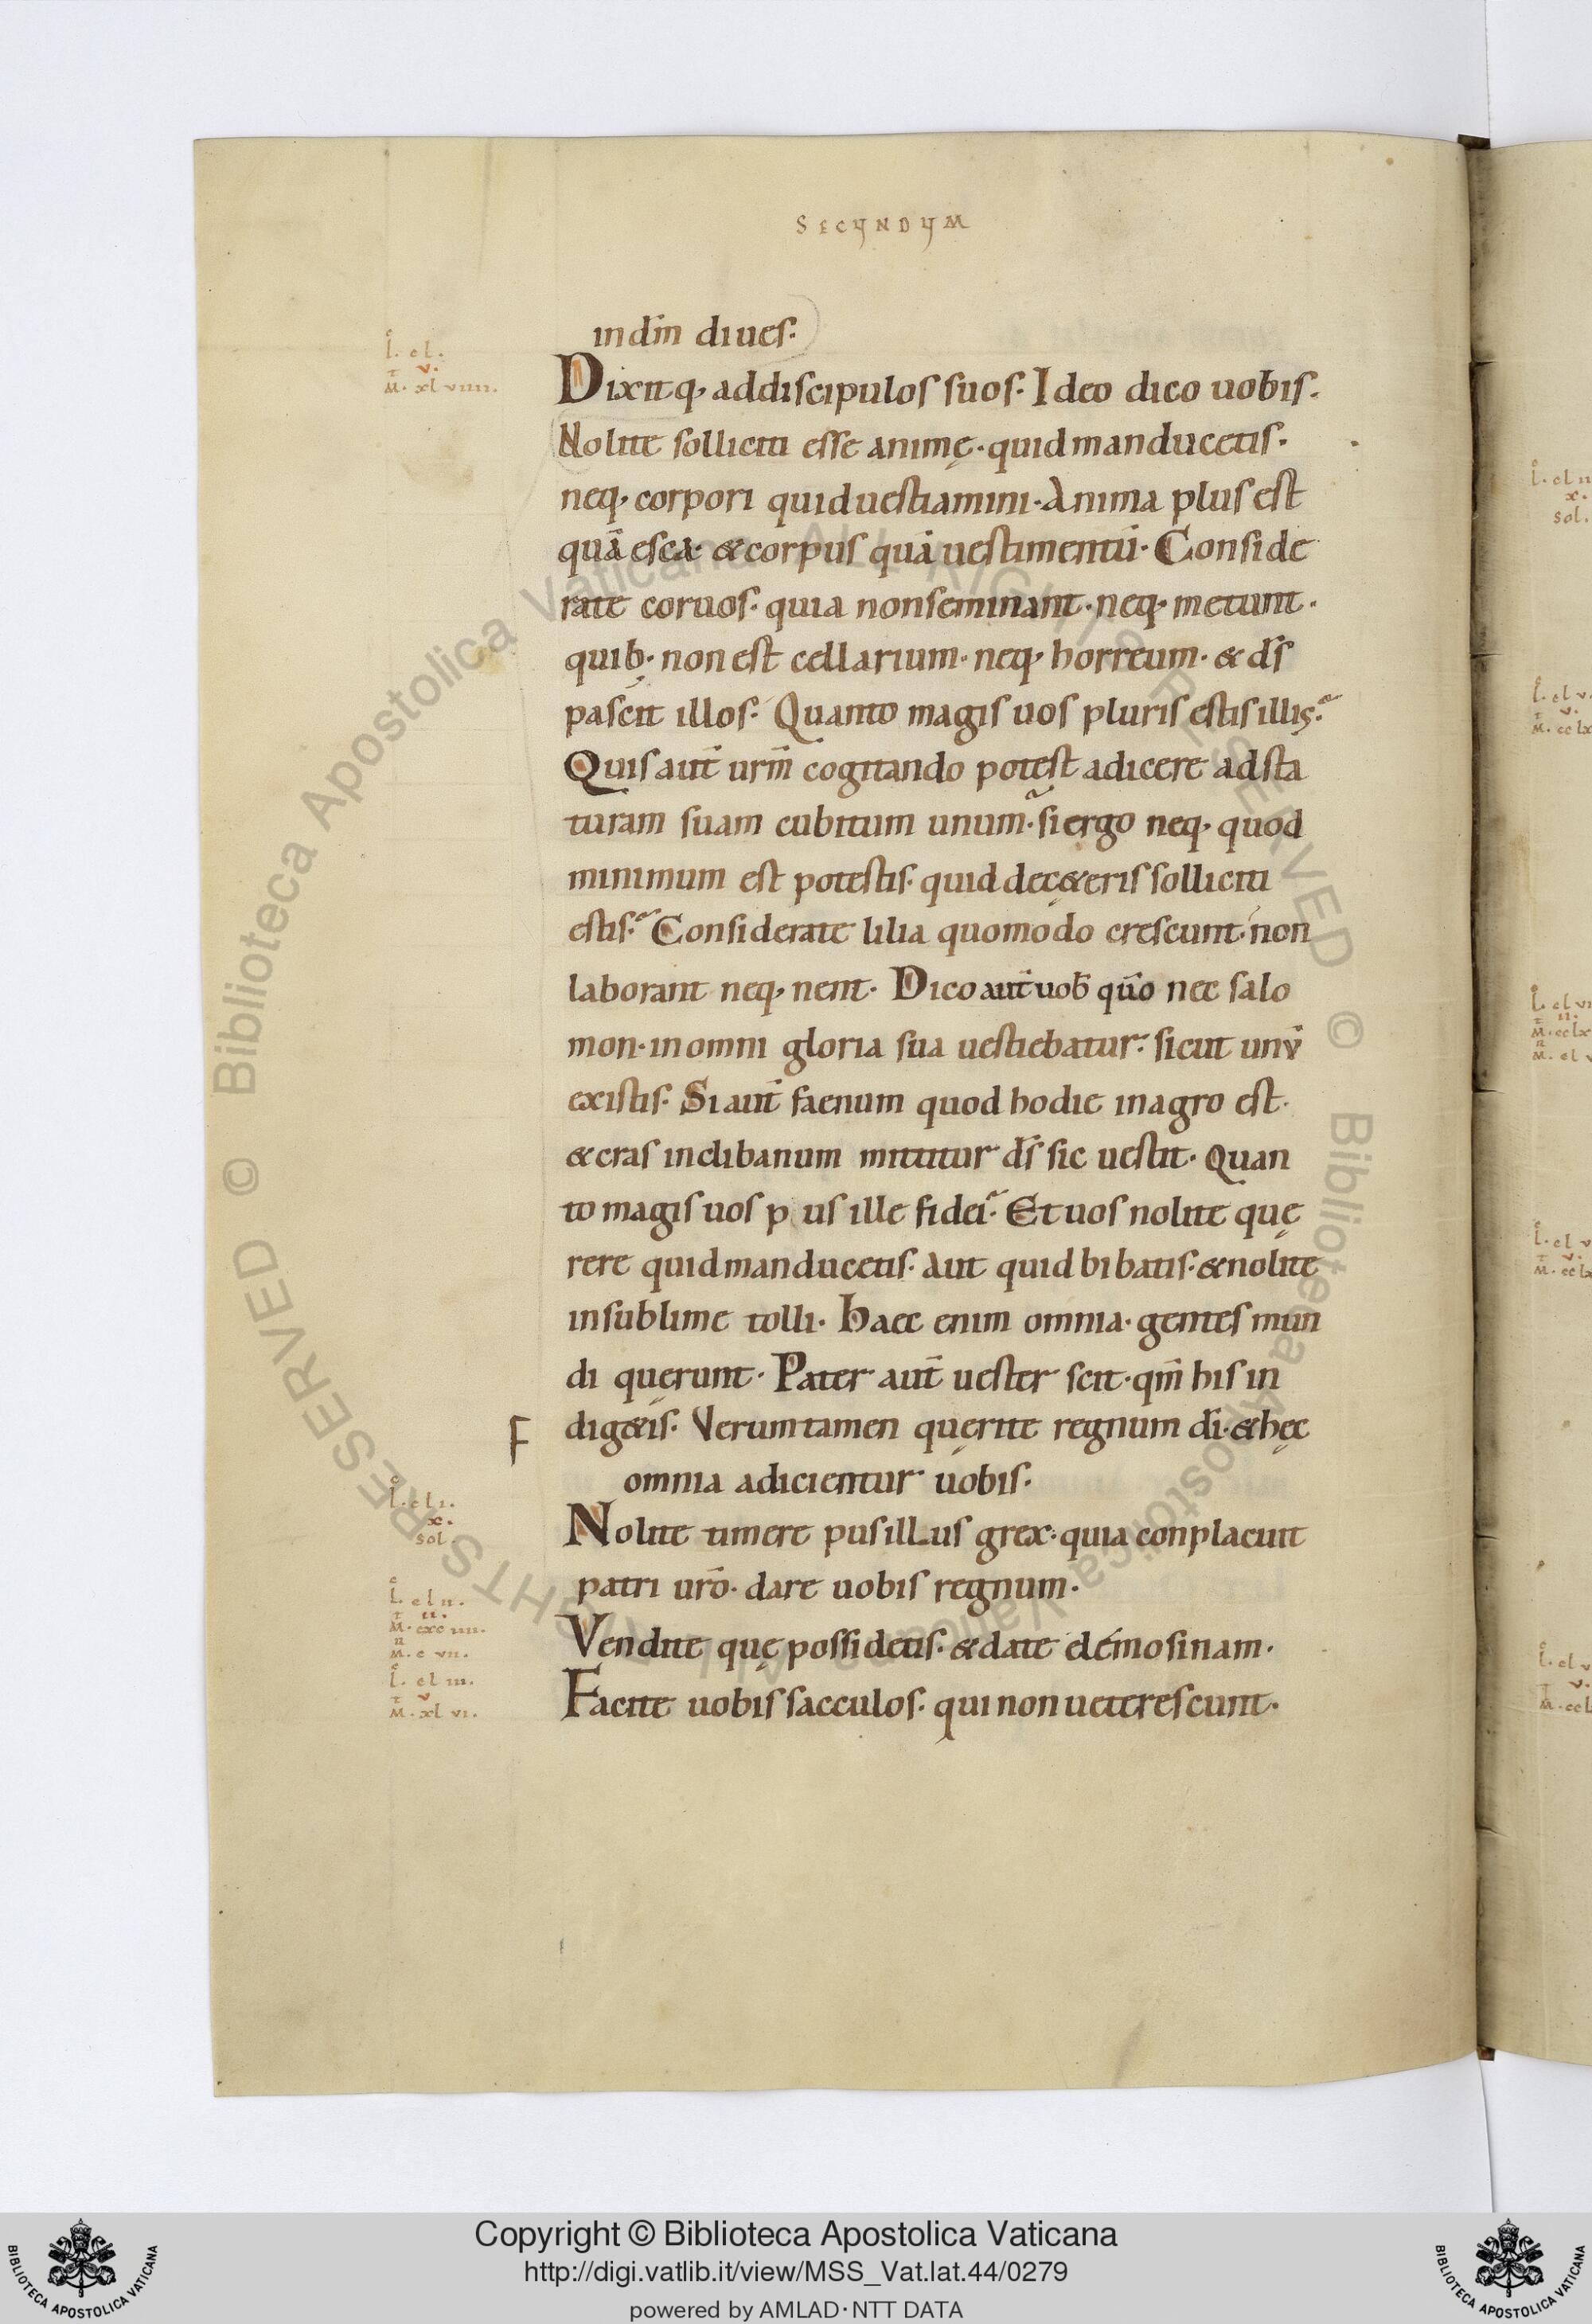 SECUNDUM
in dm̄ diues.
L. cl.
v.
M. xl viiii.
Dixitq; ad discipulos suos. Ideo dico uobis.
Nolite solliciti esse animę. quid manducetis.
neq; corpori quid uestiamini. Anima plus est
quā esca. & corpus quā uestimentū. Conside
rate coruos. quia non seminant. neq; metunt.
quib; non est cellarium. neq; horreum. & ds̄
pascit illos. Quanto magis uos pluris estis illis?
Quis aut̄ urm̄ cogitando potest adicere ad sta
turam suam cubitum unum? si ergo neq; quod
minimum est potestis. quid de cęteris solliciti
estis? Considerate lilia quomodo crescunt. non
laborant neq; nent. Dico aut̄ uob̄ quō nec salo
mon. in omni gloria sua uestiebatur. sicut unū
ex istis. Si aut̄ faenum quod hodie in agro est.
& cras in clibanum mittitur ds̄ sic uestit. Quan
to magis uos p us ille fidei? Et uos nolite quę
rere quid manducetis. Aut quid bibatis. & nolite
in sublime tolli. Haec enim omnia. gentes mun
di quęrunt. Pater aut̄ uester scit. qm̄ his in
F
dig&is. Verumtamen quęrite regnum dī. & hęc
omnia adicientur uobis.
L. cl i.
x.
sol.
Nolite timere pusillus grex. quia conplacuit
patri urō. dare uobis regnum.
L. cl ii.
ii.
M. cxc iiii.
M. c vii.
Vendite quę possidetis. & date elemosinam.
L. cl iii.
v
M. xl vi.
Facite uobis sacculos. qui non ueterescunt.
Copyright © Biblioteca Apostolica Vaticana
http://digi.vatlib.it/view/MSS_Vat.lat.44/0279
powered by AMLAD·NTT DATA
BIBLIOTECA APOSTOLICA VATICANA
BIBLIOTECA APOSTOLICA VATICANA
© Biblioteca Apostolica Vaticana ALL RIGHTS RESERVED
© Biblioteca Apostolica Vaticana ALL RIGHTS RESERVED